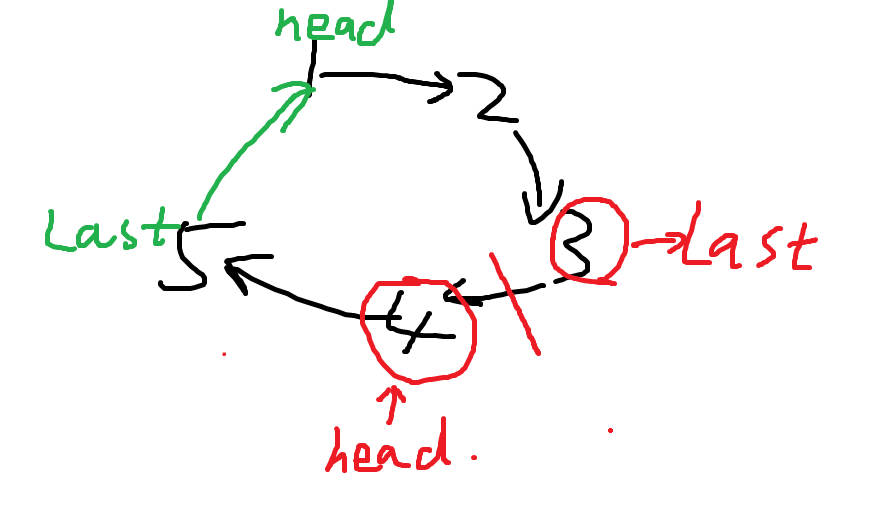 head
1
2
Last
5
3
Last
4
head.